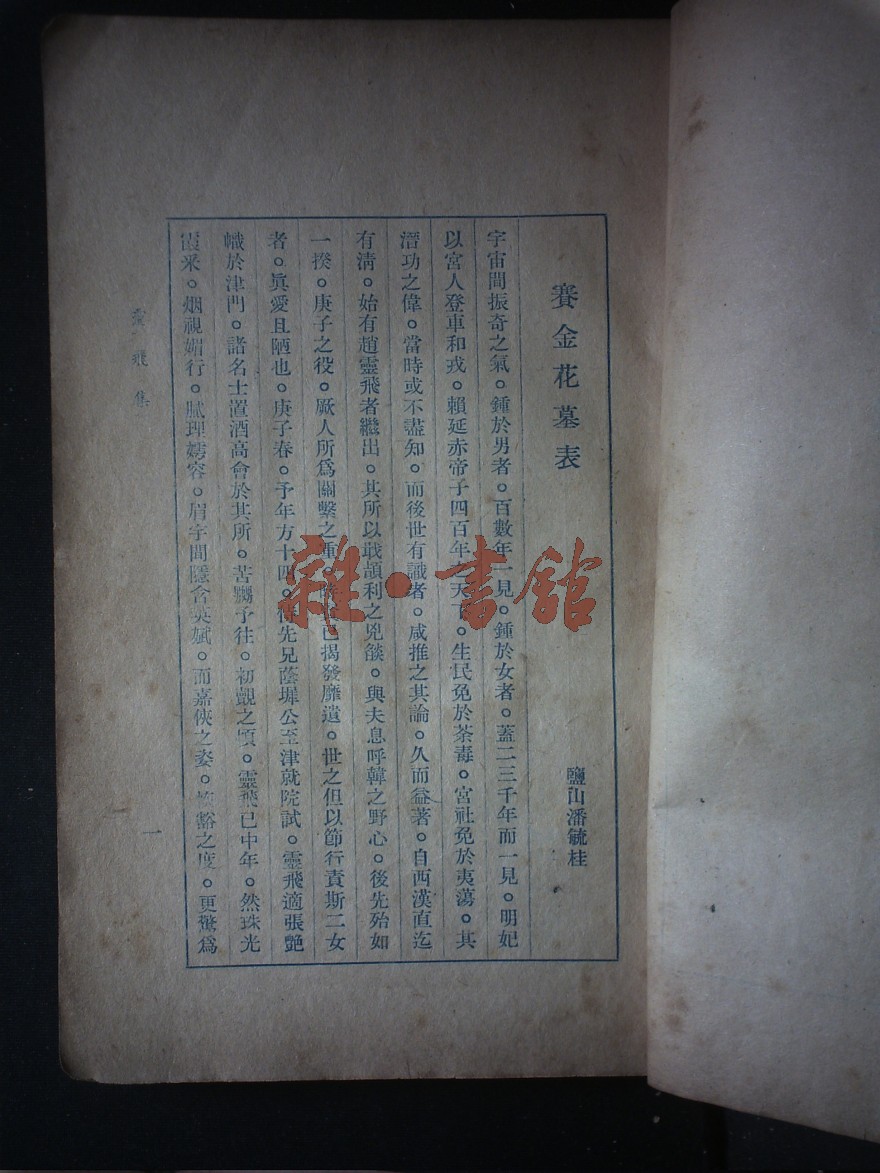 賽金花墓表
鹽山潘毓桂
宇宙間振奇之氣。鍾於男者。百數年一見。鍾於女者。蓋二三千年而一見。明妃
以宮人登車和戎。賴延赤帝子四百年之天下。生民免於荼毒。宮社免於夷蕩。其
潛功之偉。當時或不盡知。而後世有識者。咸推之其論。久而益著。自西漢直迄
有清。始有趙靈飛者繼出。其所以戢頡利之兇燄。與夫息呼韓之野心。後先殆如
一揆。庚子之役。厥人所爲關繫之重。已揭發靡遺。世之但以節行責斯二女
者。眞愛且陋也。庚子春。予年方十四。侍先兄蔭墀公至津就院試。靈飛適張艷
幟於津門。諸名士置酒高會於其所。苦嬲予往。初覿之頃。靈飛已中年。然珠光
霞釆。烟視媚行。膩理嫮容。眉宇間隱含英斌。而嘉俠之姿。豁之度。更檠爲
靈飛集
一
雜·書館